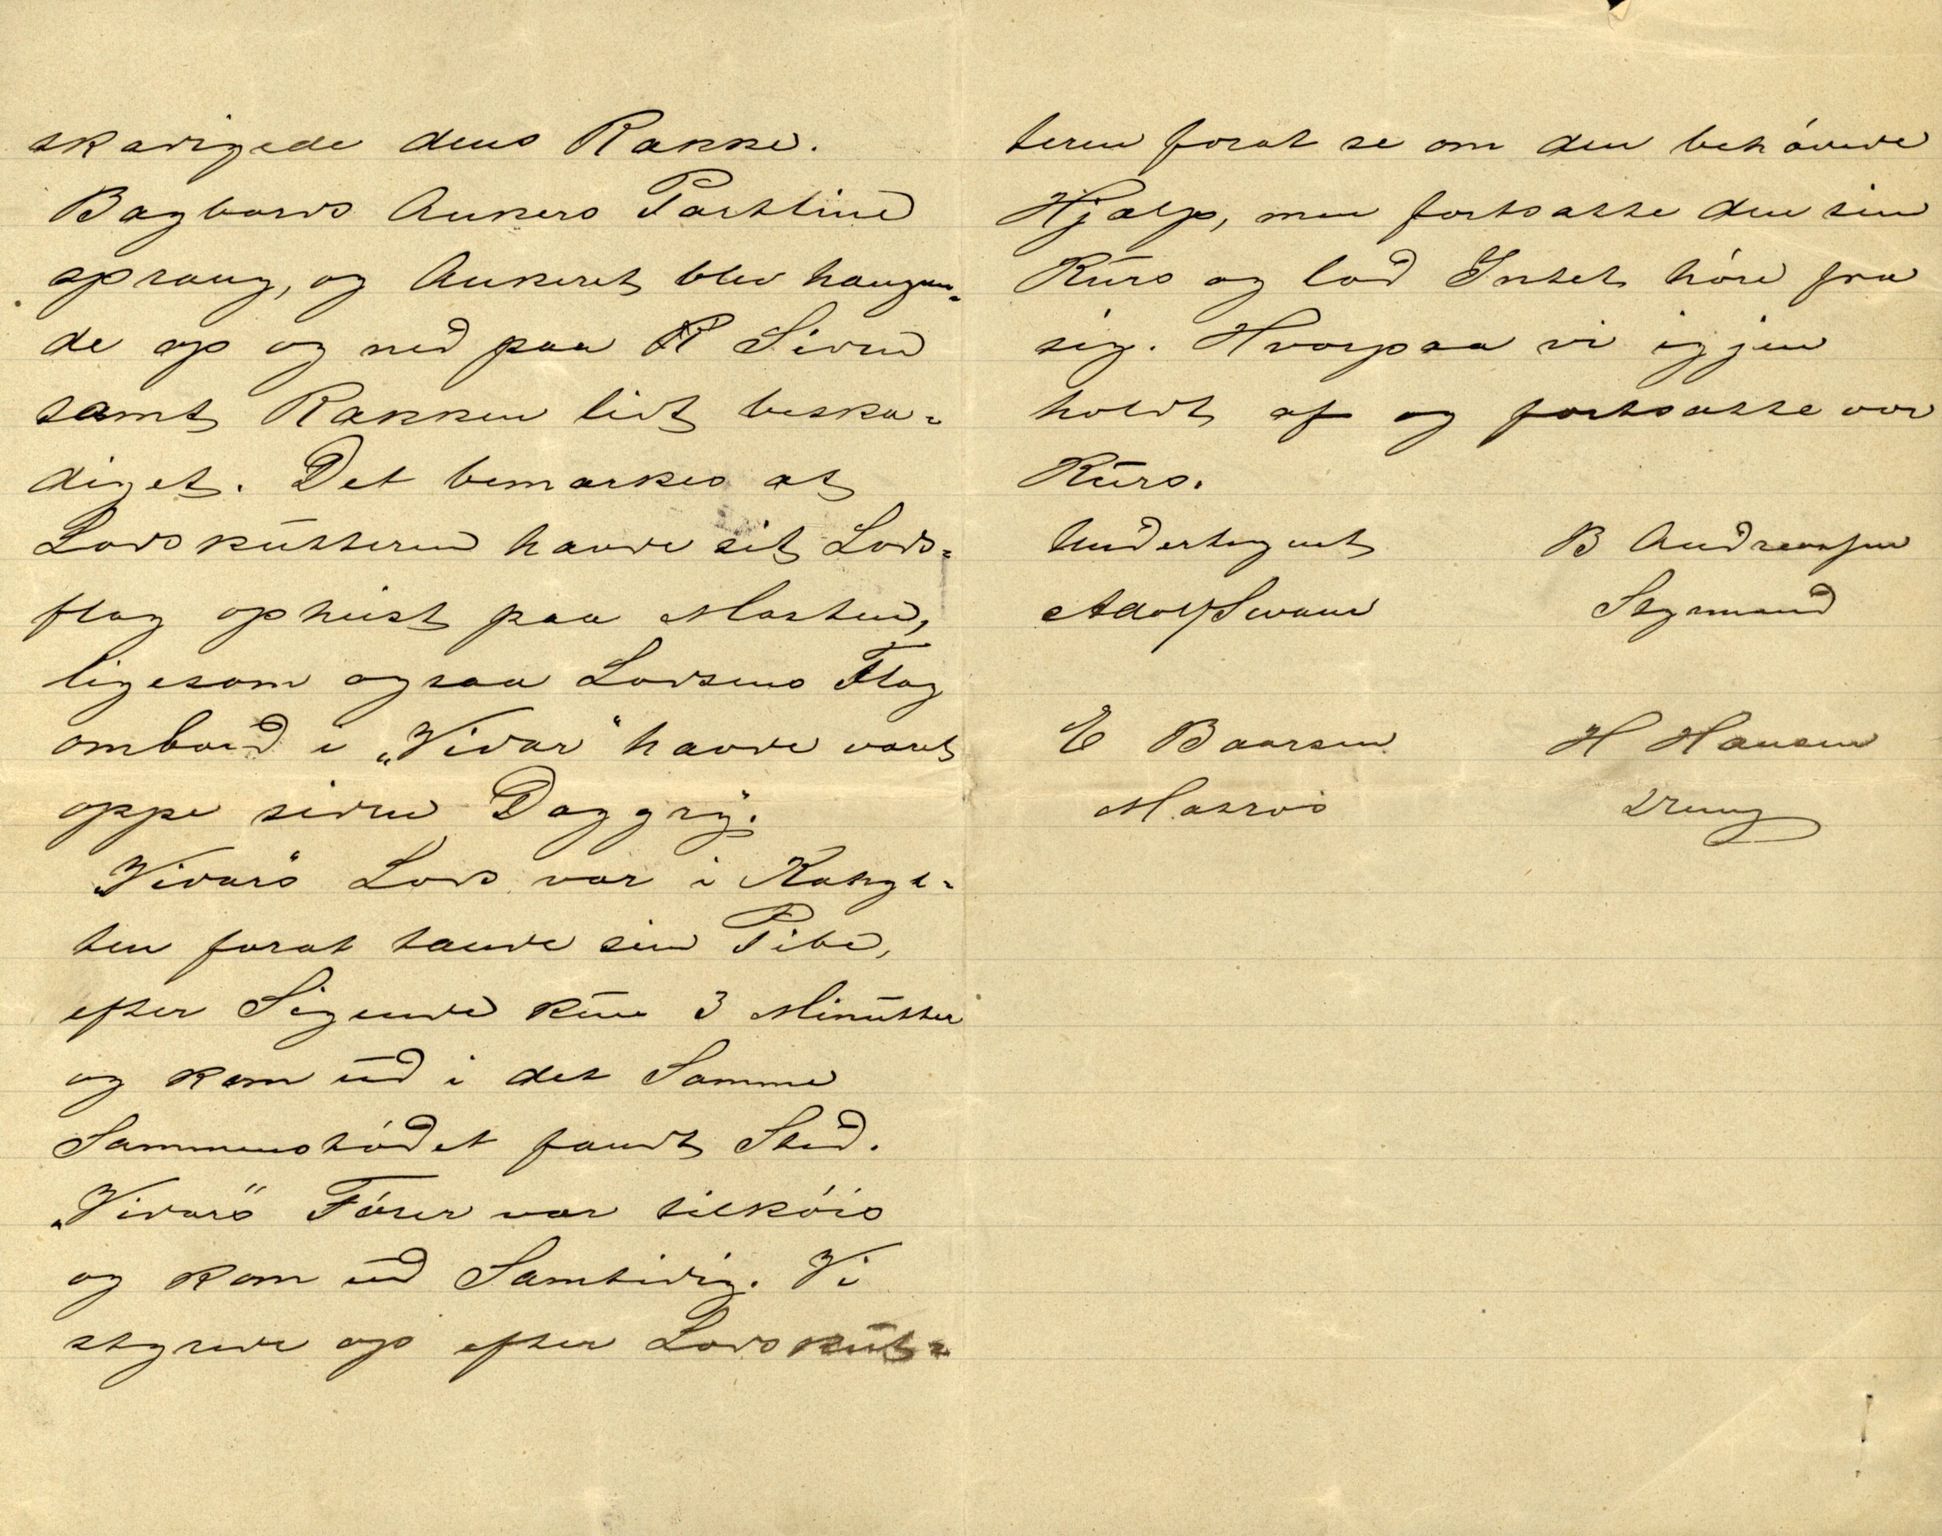 skadigede dens Række.
Bagbords Ankers Portline
sprang, og Ankeret blev hængen-
de op og ned paa R Siden
samt Rækken lidt beska-
diget. Det bemærkes at
Lodskutteren havde sit Lods-
flag ophiist paa Masten,
ligesom ogsaa Lodsens Flag
ombord i „Vidar“ havde været
oppe siden Daggry.
„Vidars“ Lods var i Kahyt-
ten forat tænde sin Pibe,
efter Sigende kun 3 Minutter
og kom ud i det Samme
Sammenstødet fandt Sted.
„Vidars“ Fører var tilkøis
og kom ud Samtidig. Vi
styrede op efter Lodskut-
teren forat se om den behøvede
Hjælp, men fortsatte den sin
Kurs og lod Intet høre fra
sig. Hvorpaa vi igjen
holdt af og fortsatte vor
Kurs.
Undertegnet B Andreassen
Adolf Svane Styrmand
E Baarsen H Hansen
Matros Dreng